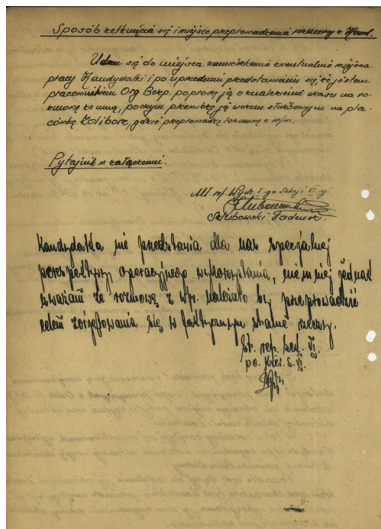 Sposób zetknięcia się i miejsce przeprowadzenia rozmowy z Kand.
Udam się do miejsca zamieszkania ewentualnie miejsca
pracy Kandydatki i po uprzednim przedstawieniu się jej jestem
pracownikiem Org. Bezp. poproszę ją o znalezienie czasu na
rozmowę ze mną, poczym przewiozę ją wozem służbowym na pla-
cówkę Żoliborz, gdzie przeprowadzę rozmowę z w/w.
Pytajnik w załączeniu.
Mł. ref. Wydz. I-go Sekcji VI-ej
Szlubowski Tadeusz
Kandydatka nie przedstawia dla nas specjalnej
perspektywy operacyjnego wykorzystania, niemniej jednak
uważam że rozmowę z w/w. należało by przeprowadzić
celem zorientowania się w faktycznym stanie rzeczy.
St. ref. Sek. VI
po. Kier. S. VI